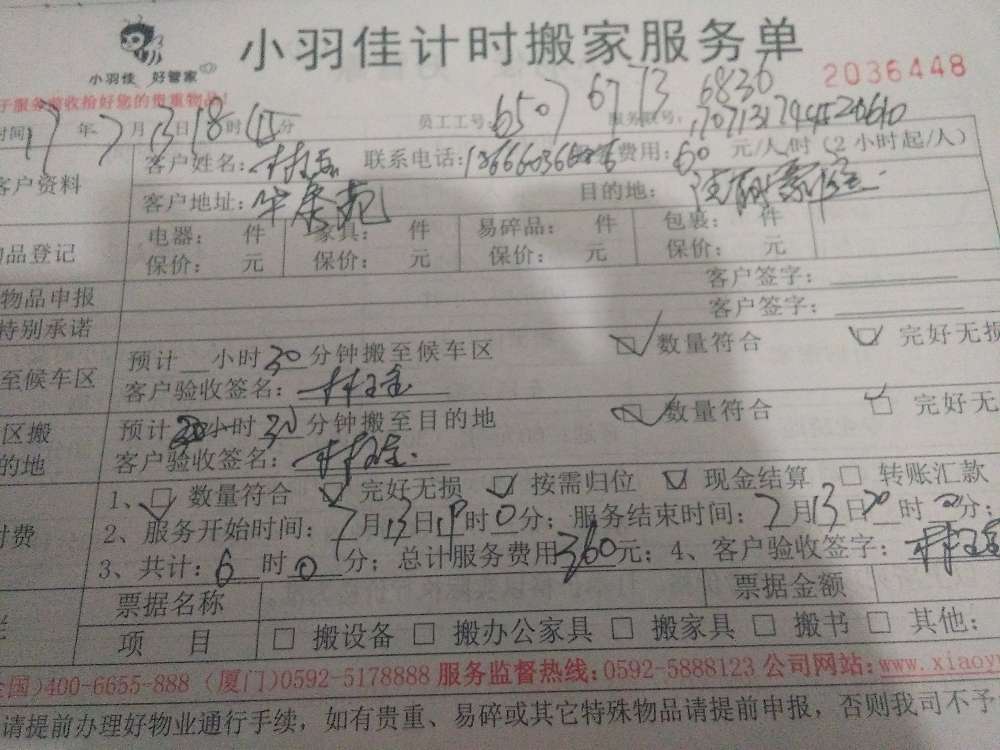 小羽佳计时搬家服务单
小羽佳 好管家
2036448
于服务前收拾好您的贵重物品！
时间 17年7月13日18时15分 员工工号: 6507 6713 6836 服务联号:
客户资料 客户姓名: 联系电话: 费用: 60元/人/时（2小时起/人）
客户地址: 目的地:
物品登记 电器: 件 家具: 件 易碎品: 件 包裹: 件
保价: 元 保价: 元 保价: 元 保价: 元
物品申报 客户签字:
特别承诺 客户签字:
至候车区 预计 小时30分钟搬至候车区 ☑数量符合 ☑完好无损
客户验收签名:
区搬 预计 小时30分钟搬至目的地 ☑数量符合 ☑完好无
的地 客户验收签名:
付费 1、☑数量符合 ☑完好无损 ☑按需归位 ☑现金结算 □转账汇款
2、服务开始时间: 7月13日 时0分; 服务结束时间: 7月13日20时 分;
3、共计: 6时0分; 总计服务费用360元; 4、客户验收签字:
票据名称 票据金额
项 目 □搬设备 □搬办公家具 □搬家具 □搬书 □其他:
全国)400-6655-888 (厦门)0592-5178888 服务监督热线:0592-5888123 公司网站:www.xiaoy
请提前办理好物业通行手续，如有贵重、易碎或其它特殊物品请提前申报，否则我司不予